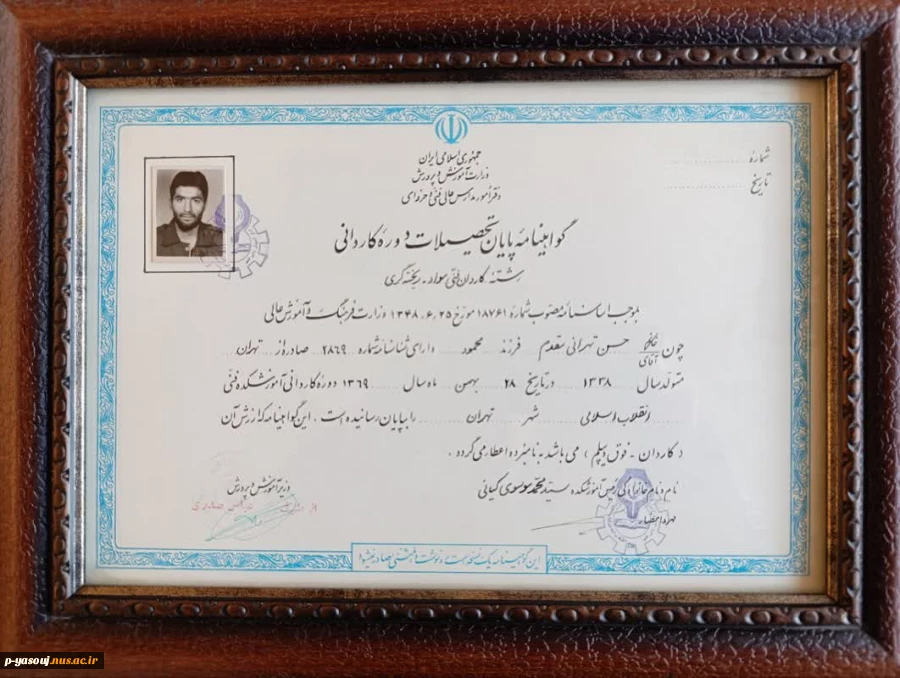 جمهوری اسلامی ایران
وزارت آموزش و پرورش
دفتر امور مدارس عالی فنی و حرفه‌ای
شماره
تاریخ
گواهینامه پایان تحصیلات دوره کاردانی
رشته: کاردان فنی مواد - ریخته گری
بموجب اساسنامه مصوب شماره ۱۸۷۶۱ مورخ ۱۳۴۸.۶.۲۵ وزارت فرهنگ و آموزش عالی
چون خانم آقای حسن تهرانی مقدم فرزند محمود دارای شناسنامه شماره ۲۸۶۹ صادره از تهران
متولد سال ۱۳۳۸ در تاریخ ۲۸ بهمن ماه سال ۱۳۶۹ دوره کاردانی آموزشکده فنی
انقلاب اسلامی شهر تهران را بپایان رسانیده است . این گواهینامه که ارزش آن
( کاردان - فوق دیپلم ) می باشد به نامبرده اعطا می گردد .
نام و نام خانوادگی رئیس آموزشکده سید محمد موسوی کیانی
مهر و امضاء
وزیر آموزش و پرورش
از طرف عباس صدری
این گواهینامه یک نسخه است و رونوشت یا المثنی صادر نمیشود
p-yasouj.nus.ac.ir